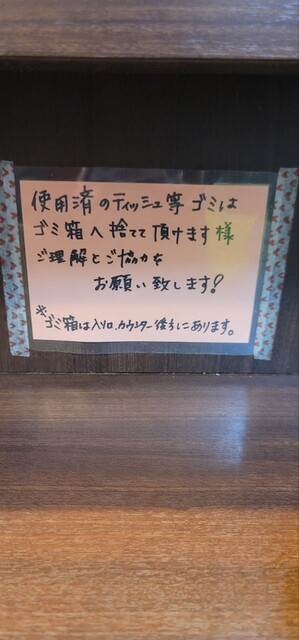 使用済のティッシュ等ゴミは
ゴミ箱へ捨てて頂けます様
ご理解とご協力を
お願い致します!
※ゴミ箱は入り口、カウンター後ろにあります。